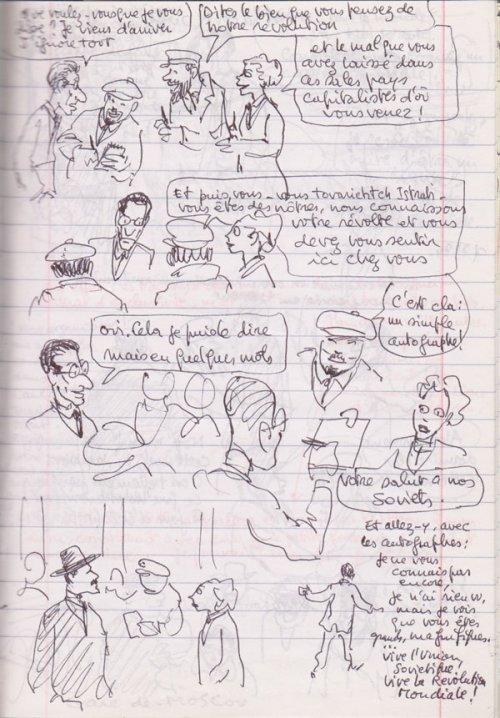 voulez-vous que je vous
dise ? Je viens d'arriver
J'ignore tout
Dites le bien que vous pensez de
notre révolution
et le mal que vous
avez laissé dans
ces sales pays
capitalistes d'où
vous venez !
Et puis, vous - vous tovarichtch Istrati -
vous êtes des nôtres, nous connaissons
votre révolte et vous
devez vous sentir
ici chez vous
C'est cla:
un simple
autographe!
oui. Cela je puis le dire
mais en quelques mots
Votre salut à nos
Soviets.
Et allez-y, avec
les autographes:
je ne vous
connais pas
encore,
je n'ai rien vu,
mais je vois
que vous êtes
grands, magnifiques.
...vive l'Union
Soviétique,
Vive la Révolution
Mondiale!